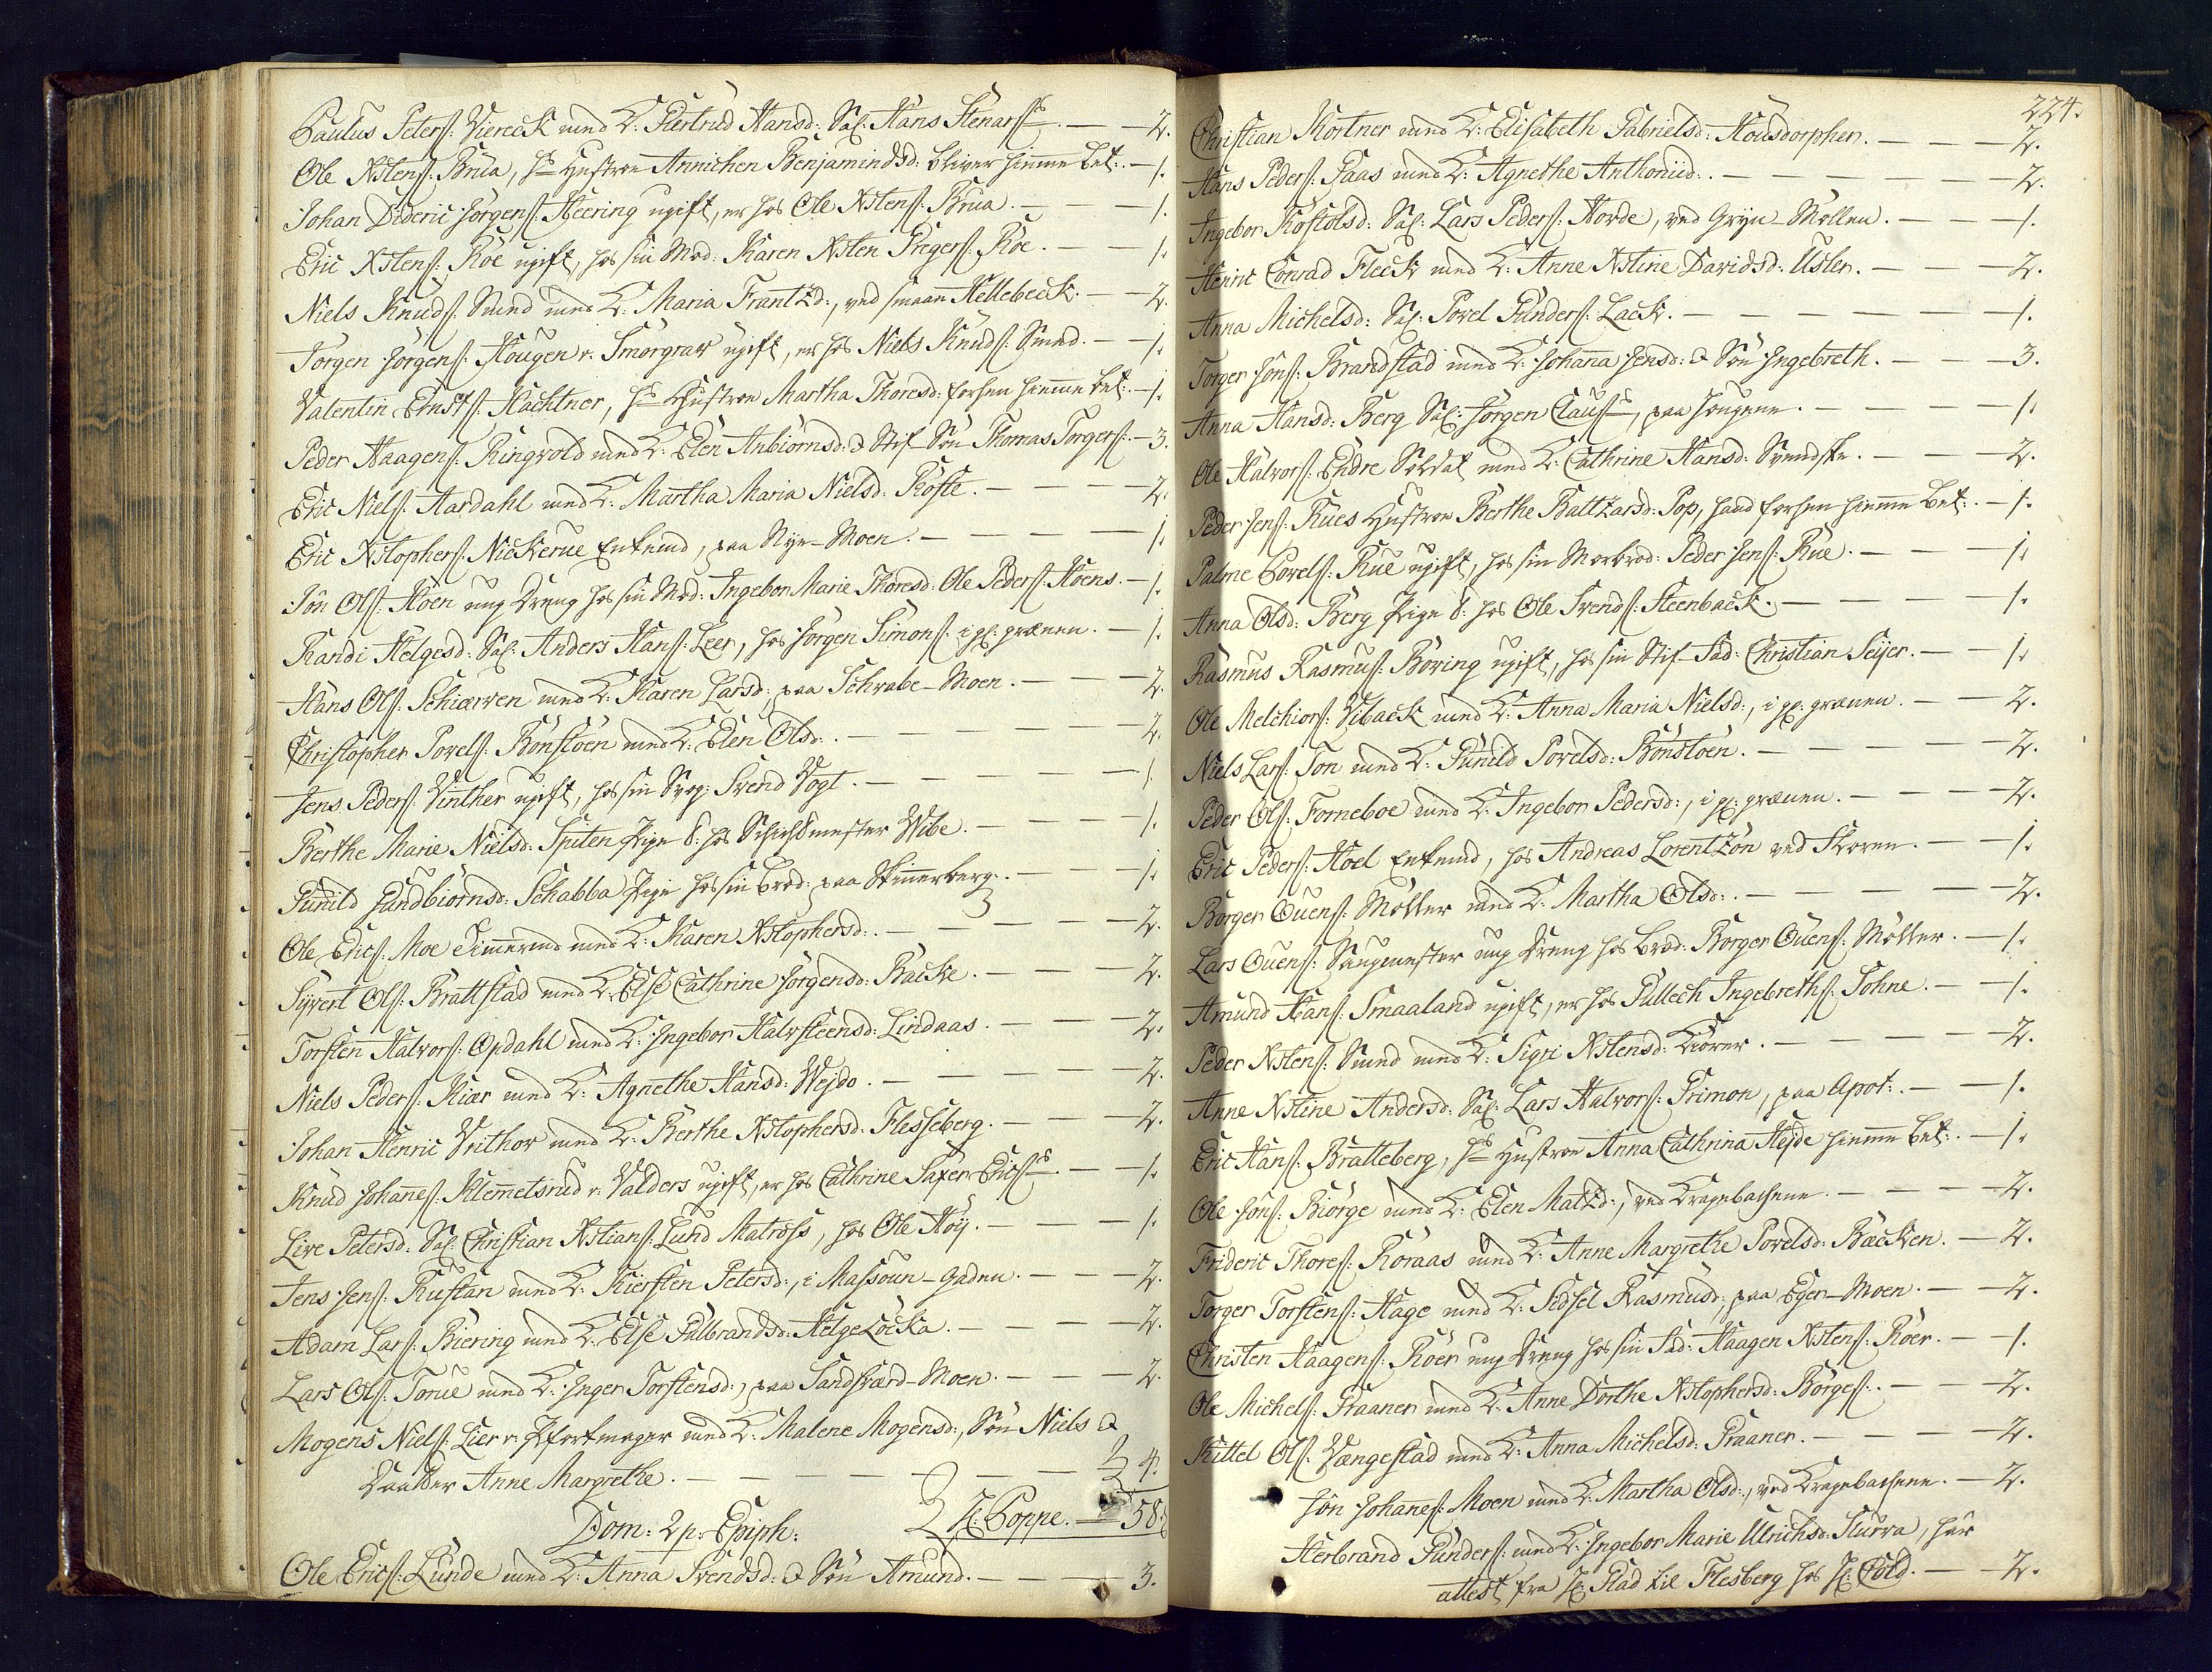 Paulus Peters: Viereck med K: Giertrud Hansd: Sal: Hans Stenars: — — 2.
Ole Xstens: Brua, hs Hustroe Annichen Benjamindsd: bliver hiemme bet: — 1.
Johan Dideric Jørgens: Heering ugift, er hos Ole Xstens: Brua. — — — 1.
Eric Xstens: Roe ugift, hos sin Mod: Karen Xsten Gregers: Roe. — — 1.
Niels Knuds: Smed med K: Maria Frantzd:, ved smaae Hellebeck. — — 2.
Jørgen Jørgens: Hougen v. Smørgrav ugift, er hos Niels Knuds: Smed. — — 1.
Valentin Ernsts: Hachtner, hs Hustroe Martha Thoresd: forhen hiemme bet: — 1.
Peder Haagens: Ringvold med K: Elen Anbiørnsd: & Stif-Søn Thomas Torgers: — 3.
Eric Niels: Aardahl med K: Martha Maria Nielsd: Røste. — — — 2.
Eric Xstophers: Nickerue Enkemd, paa Nye-Moen. — — — — 1.
Jôn Ols: Hoen ung Dreng hos sin Mod: Ingebor Marie Thoresd: Ole Peders: Hoens. — 1.
Randi Helgesd: Sal: Anders Hans: Leer, hos Jørgen Simons: i gl: grænen. — 1.
Hans Ols: Schiærven med K: Karen Larsd:, paa Schrabe-Moen. — — — 2.
Christopher Povels: Bønstoen med K: Elen Olsd: — — — — 2.
Jens Peders: Vinther ugift, hos sin Svog: Svend Vogt. — — — — 1.
Berthe Marie Nielsd: Spiten Pige t: hos Schichtmester Wibe. — — — 1.
Gunild Gundbiørnsd: Schabba Pige hos sin Brod: paa Skinnerberg. — — — 1.
Ole Erics: Moe Timmermd med K: Karen Xstophersd: — — — — 2.
Syvert Ols: Brattstad med K: Else Cathrine Jørgensd: Backe. — — — 2.
Torsten Halvors: Opdahl med K: Ingebor Halvsteensd: Lindaas. — — — 2.
Niels Peders: Kiær med K: Agnethe Hansd: Wejdo. — — — — 2.
Johan Henric Veithov med K: Berthe Xstophersd: Flesseberg. — — — 2.
Knud Johannes: Klemmetsrud v. Valders ugift, er hos Cathrine Safen Erics: — — 1.
Live Petersd: Sal: Christian Xstians: Lund Matross, hos Ole Høy. — — — 1.
Jens Jens: Rustan med K: Kiersten Petersd:, i Massoun-gaden. — — — 2.
Adam Lars: Biering med K: Else Gulbrandsd: Helgeløcka. — — — 2.
Lars Ols: Torue med K: Inger Torstensd:, paa Sandsværd-Moen. — — — 2.
Mogens Niels: Lier v. med K: Malene Mogensd:, Søn Niels &
Daatter Anne Margrethe. — — — — — 4.
H: Poppe. — 58
Dom: 2 p: Epiph:
Ole Erics: Lunde med K: Anna Svendsd: & Søn Amund. — — — 3.
224.
Christian Mortner med K: Elisabeth Gabrielsd: Housdorpher. — — — 2.
Hans Peders: Faas med K: Agnethe Anthoniid: — — — — 2.
Ingebor Kostolsd: Sal: Lars Peders: Horde, ved Gryn-Møllen. — — — 1.
Henric Conrad Fleck med K: Anne Xstine Davidsd: Usler. — — — 2.
Anna Michelsd: Sal: Povel Gunders: Lack. — — — — — 1.
Torger Jôns: Brandstad med K: Johanna Jensd: & Søn Ingebreth. — — — 3.
Anna Hansd: Berg Sal: Jørgen Claus:, paa Hougene. — — — — 1.
Ole Halvors: Endre Soldat med K: Cathrine Hansd: Svendske. — — — 2.
Peder Jens: Rues Hustroe Berthe Baltzarsd: Pop, hand forhen hiemme bet: — 1.
Palme Povels: Rue ugift, hos sin Morbrod: Peder Jens: Rue. — — — 1.
Anna Olsd: Berg Pige t: hos Ole Svends: Steenback. — — — — 1.
Rasmus Rasmus: Boring ugift, hos sin Stif-Fad: Christian Seijer. — — 1.
Ole Melchiors: Viback med K: Anna Maria Nielsd:, i gl: grænen. — — 2.
Niels Lars: Ton med K: Gunild Povelsd: Bønstoen. — — — — 2.
Peder Ols: Forneboe med K: Ingebor Pedersd:, i gl: grænen. — — — 2.
Eric Peders: Hoel Enkemd, hos Andreas Lorentzôn ved Skoven. — — 1.
Børger Ouens: Møller med K: Martha Olsd: — — — — — 2.
Lars Ouens: Saugmester ung Dreng hos Brod: Børger Ouens: Møller. — 1.
Amund Hans: Smaaland ugift, er hos Gullech Ingebreths: Tohne. — — 1.
Peder Xstens: Smed med K: Sigri Xstensd: Kiørner. — — — — 2.
Anne Xstine Andersd: Sal: Lars Halvors: Primon, paa Apot: — — 1.
Eric Hans: Bratteberg, hs Hustroe Anna Cathrina Hejde hiemme bet: — 1.
Ole Jôns: Biørge med K: Elen Matzd:, ved Kragebachene. — — — 2.
Frideric Thores: Roraas med K: Anne Margrethe Povelsd: Bæcken. — 2.
Torger Torstens: Hage med K: Sidsel Rasmusd: paa Eger-Moen. — — 2.
Christen Haagens: Roer ung Dreng hos sin Fad: Haagen Xstens: Roer. — 1.
Ole Michels: Graaner med K: Anne Dorthe Xstophersd: Børges: — — 2.
Kittel Ols: Vængestad med K: Anna Michelsd: Graaner. — — — 2.
Jôn Johannes: Moen med K: Martha Olsd:, ved Kragebachene. — 2.
Herbrand Gunders: med K: Ingebor Marie Ulrichsd: Slurva, har
attest fra H: Stad til Flesberg hos H: Cold. — — 2.